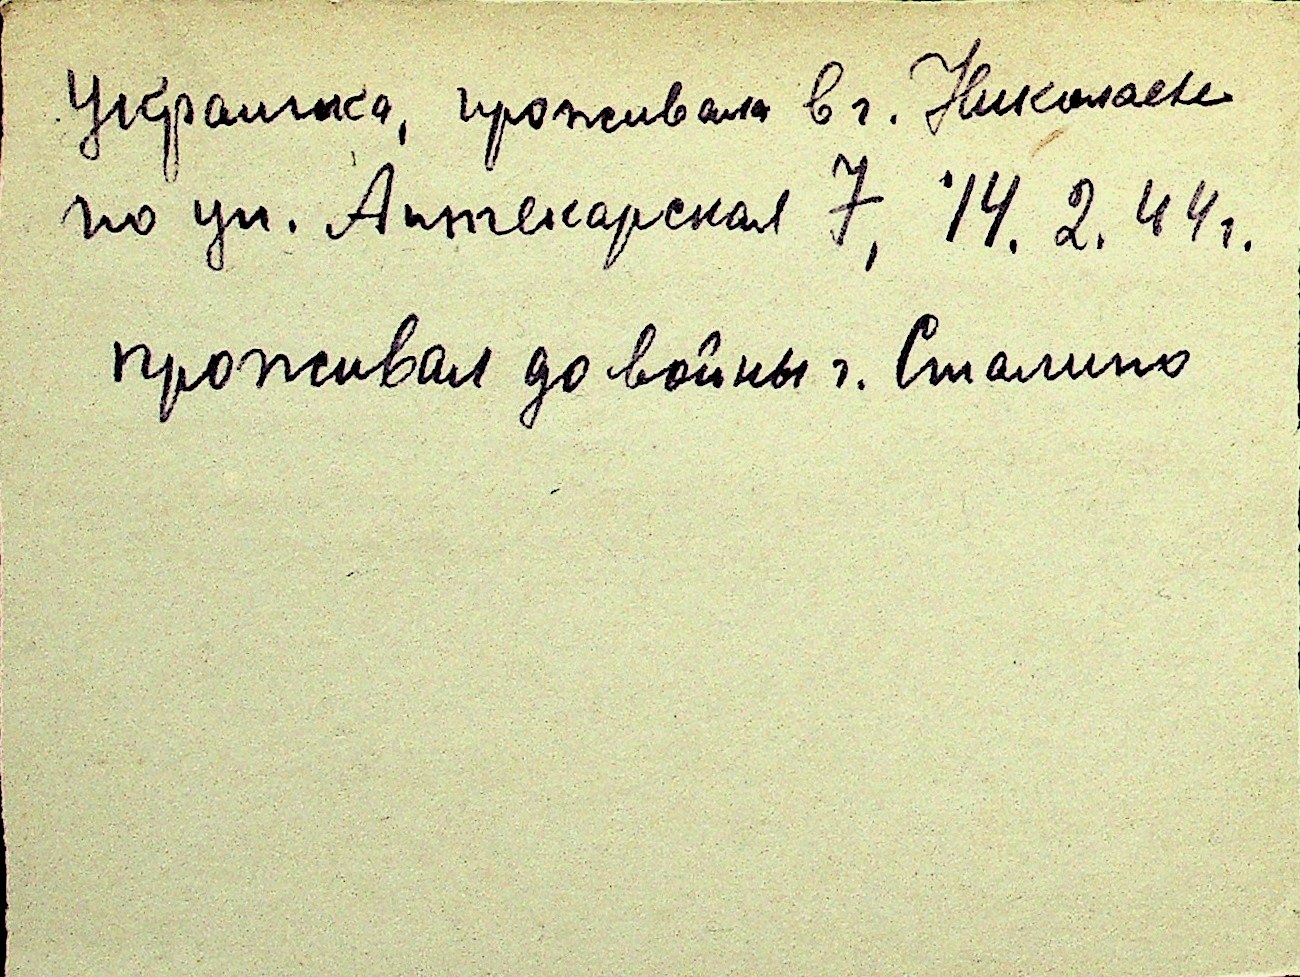 Украинка, проживала в г. Николаеве
по ул. Аптекарская 7, 14. 2. 44 г.
проживал до войны г. Сталино